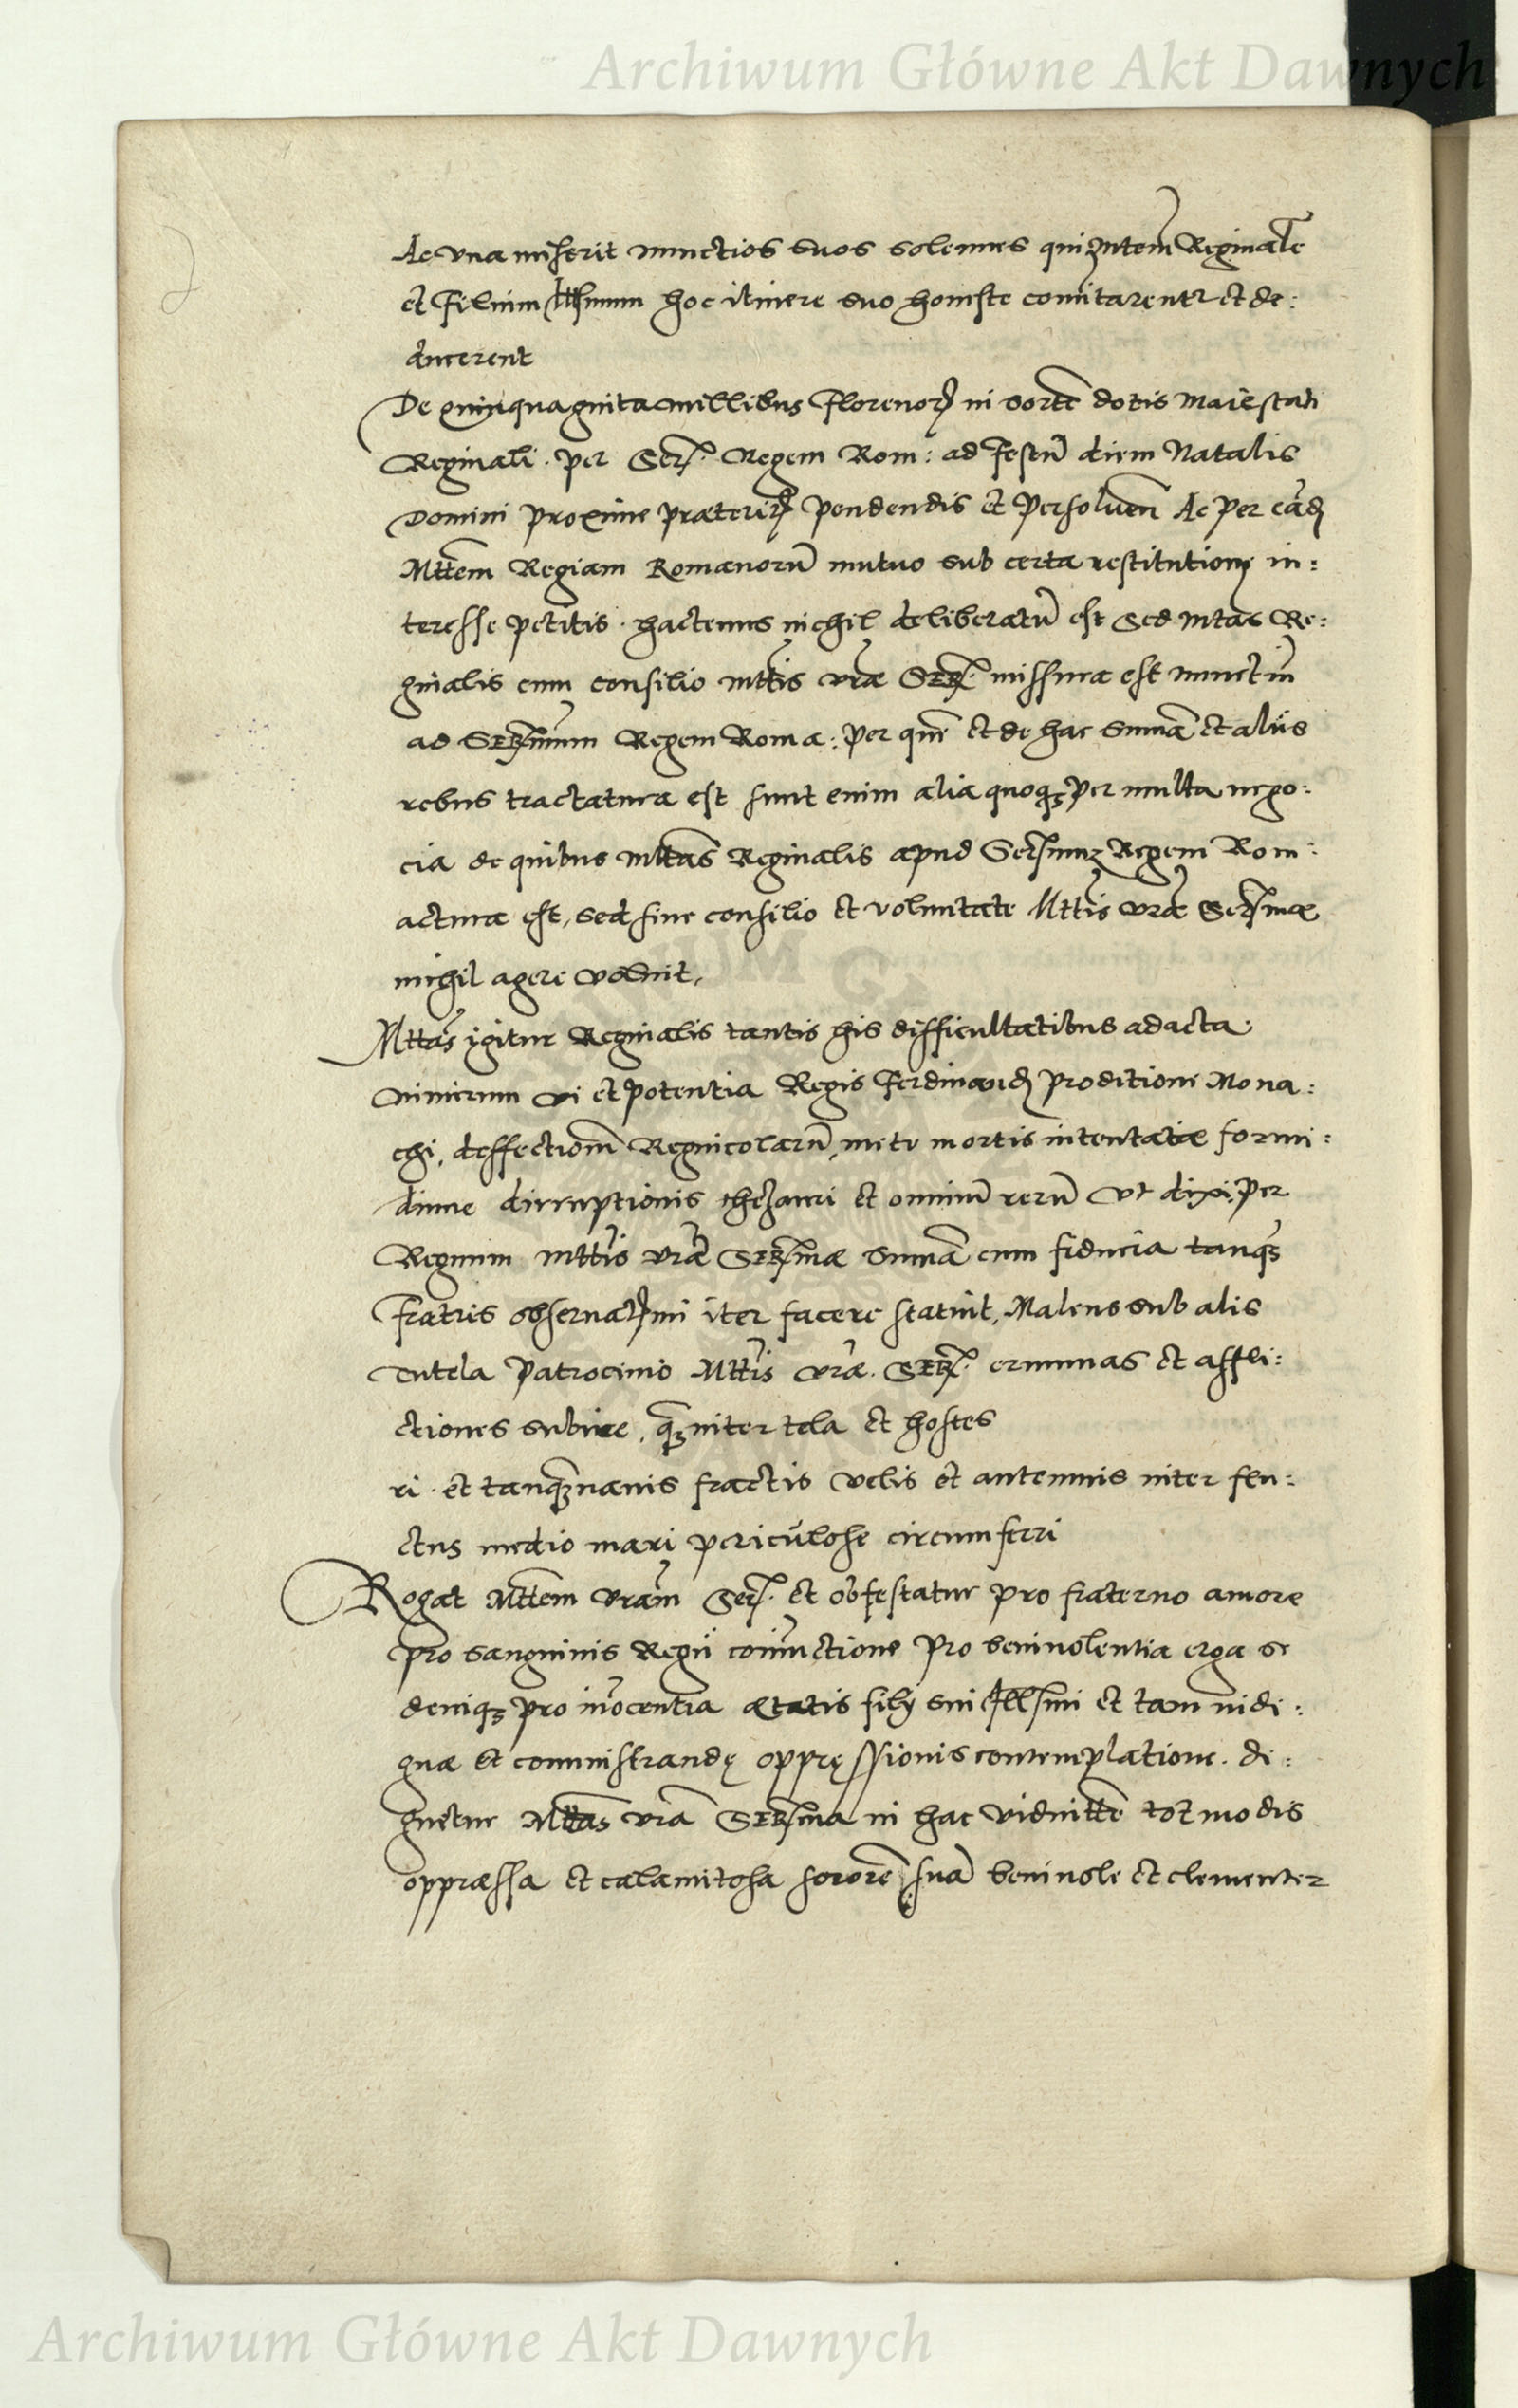 Archiwum Główne Akt Dawnych
Ac vna miserit nunctios suos solennes qui Mtem Reginalē
et Filium Illsmum hoc itinere suo honeste comitarentr et de:
ducerent
De quinquaginta millibus Florenor in sortē dotis Maiestati
Reginali. per Ser. Regem Rom: ad Festū diem Natalis
Domini proxime præterit pendendis et persoluen Ac per eād
Mttem Regiam Romanorū mutuo sub certa restitutione in:
teresse petitis. hactenus nichil deliberatū est Sed Mtas Re:
ginalis cum consilio Mttis vræ Ser. missura est nunctiū
ad Sermum Regem Roma: per quē et de hac summa et aliis
rebus tractatura est sunt enim alia quoq per multa nego:
cia de quibus Mttas Reginalis apud Sersmum Regem Rom:
actura est, sed sine consilio et voluntate Mttis vræ Sersmæ
nichil agere voluit,
Mttas igitur Reginalis tantis his difficultatibus adacta
nimirum vi et potentia Regis Ferdinandi proditione Mona:
chi, deffectionē Regnicolarū, metu mortis intentatæ formi:
dine dirruptionis thezauri et omniū rerū vt dixi, per
Regnum Mttis vræ Sersmæ summa cum fiducia tanq
Fratris obseruatmi iter facere statuit, Malens sub alis
Tutela patrocinio Mttis vræ. Ser. erumnas et affli:
ctiones subire, q inter tela et hostes
ri. et tanq nauis fractis velis et antemnis inter flu:
ctus medio mari pericūlose circumferri
Rogat Mttem vram Ser. et obtestatur pro fraterno amore
pro sanguinis Regii coniunctione pro beniuolentia erga se
deniq pro inocentia ætatis filij sui Illsmi et tam indi:
gnæ et commistrandę oppręssionis contemplatione. di:
gnetur Mttas vra Sersma in hac viduitte tot modis
oppræssa et calamitosa sororē suā beniuole et clementer
Archiwum Główne Akt Dawnych